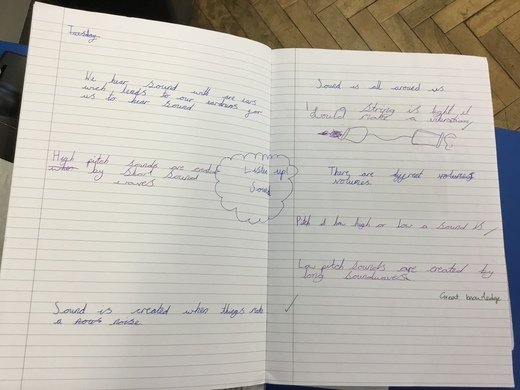 Tuesday
We hear sound with are ears
wich leads to our eardrums for
us to hear sound
High pitch sounds are
when by short sound
waves
Listen up!
Sound
Sound is created when things make
a noise
Sound is all around us
string is tight it
Sould make a vibration
There are different volumes
volumes
Pitch is how high or low a sound is
Low pitch sounds are created by
long soundwaves
Great knowledge